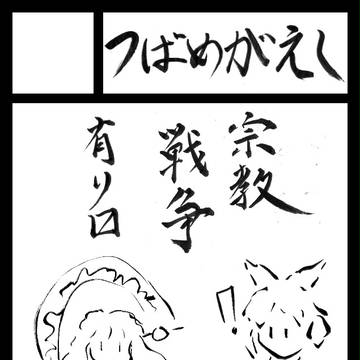 つばめがえし
宗教
戦争
有り口
!